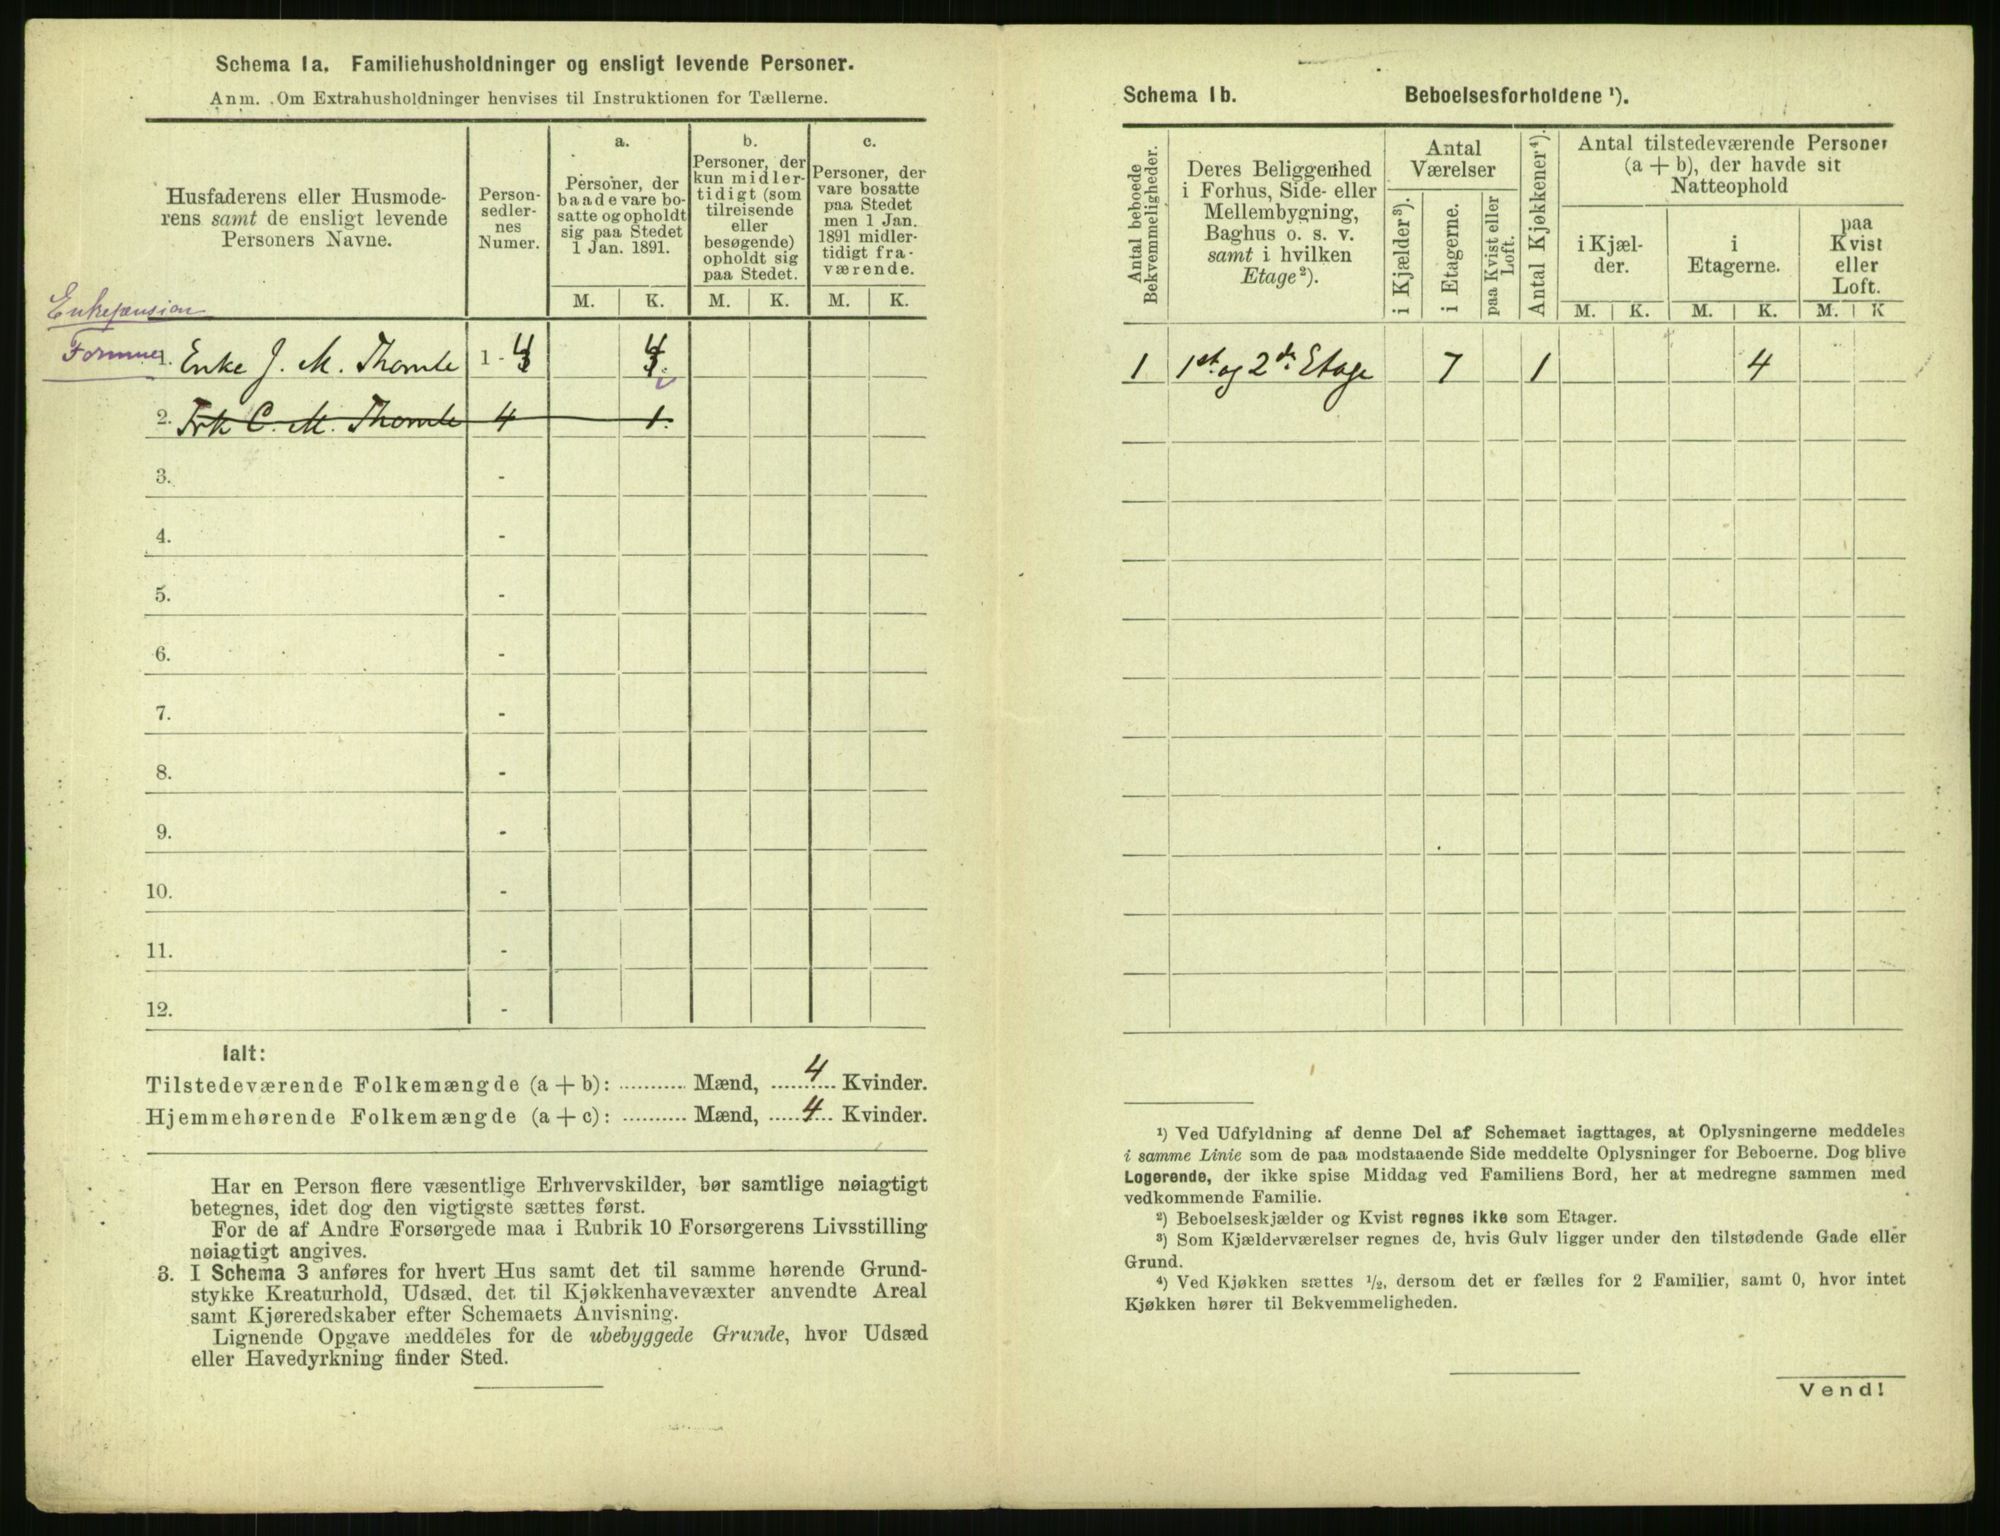 Schema 1a. Familiehusholdninger og ensligt levende Personer.
Anm. Om Extrahusholdninger henvises til Instruktionen for Tællerne.
Husfaderens eller Husmode-
rens samt de ensligt levende
Personers Navne.
Person-
sedler-
nes
Numer.
a.
Personer, der
baade vare bo-
satte og opholdt
sig paa Stedet
1 Jan. 1891.
b.
Personer, der
kun midler-
tidigt (som
tilreisende
eller
besøgende)
opholdt sig
paa Stedet.
c.
Personer, der
vare bosatte
paa Stedet
men 1 Jan.
1891 midler-
tidigt fra-
værende.
M. K. M. K. M. K.
Enkepension
Formue
1. Enke J. M. Thomle 1 - 4 4
2. Frk C. M. Thomle 4 1.
3. -
4. -
5. -
6. -
7. -
8. -
9. -
10. -
11. -
12. -
Ialt:
Tilstedeværende Folkemængde (a + b): ........... Mænd, 4 Kvinder.
Hjemmehørende Folkemængde (a + c): ........... Mænd, 4 Kvinder.
Har en Person flere væsentlige Erhvervskilder, bør samtlige nøiagtigt
betegnes, idet dog den vigtigste sættes først.
For de af Andre Forsørgede maa i Rubrik 10 Forsørgerens Livsstilling
nøiagtigt angives.
3. I Schema 3 anføres for hvert Hus samt det til samme hørende Grund-
stykke Kreaturhold, Udsæd, det til Kjøkkenhavevæxter anvendte Areal
samt Kjøreredskaber efter Schemaets Anvisning.
Lignende Opgave meddeles for de ubebyggede Grunde, hvor Udsæd
eller Havedyrkning finder Sted.
Schema 1b. Beboelsesforholdene ¹).
Antal beboede
Bekvemmeligheder.
Deres Beliggenhed
i Forhus, Side- eller
Mellembygning,
Baghus o. s. v.
samt i hvilken
Etage ²).
Antal
Værelser
i Kjælder ³).
i Etagerne.
paa Kvist eller
Loft.
Antal Kjøkkener ⁴).
Antal tilstedeværende Personer
(a + b), der havde sit
Natteophold
i Kjæl-
der.
i
Etagerne.
paa
Kvist
eller
Loft.
M. K. M. K. M. K
1 1st. og 2de Etage 7 1 4
¹) Ved Udfyldning af denne Del af Schemaet iagttages, at Oplysningerne meddeles
i samme Linie som de paa modstaaende Side meddelte Oplysninger for Beboerne. Dog blive
Logerende, der ikke spise Middag ved Familiens Bord, her at medregne sammen med
vedkommende Familie.
²) Beboelseskjælder og Kvist regnes ikke som Etager.
³) Som Kjælderværelser regnes de, hvis Gulv ligger under den tilstødende Gade eller
Grund.
⁴) Ved Kjøkken sættes ¹/₂, dersom det er fælles for 2 Familier, samt 0, hvor intet
Kjøkken hører til Bekvemmeligheden.
Vend!